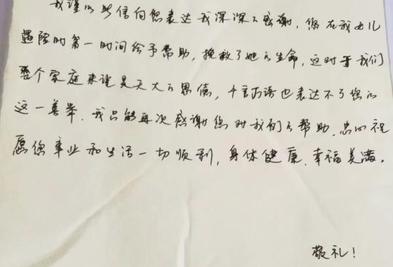 我谨以此信向您表达我深深的感谢，您在我女儿
遇险时第一时间给予帮助，挽救了她的生命，这对于我们
整个家庭来说是天大的恩情，千言万语也表达不了您的
这一善举，我只能再次感谢您对我们的帮助，忠心祝
愿您事业和生活一切顺利，身体健康、幸福美满。
敬礼！